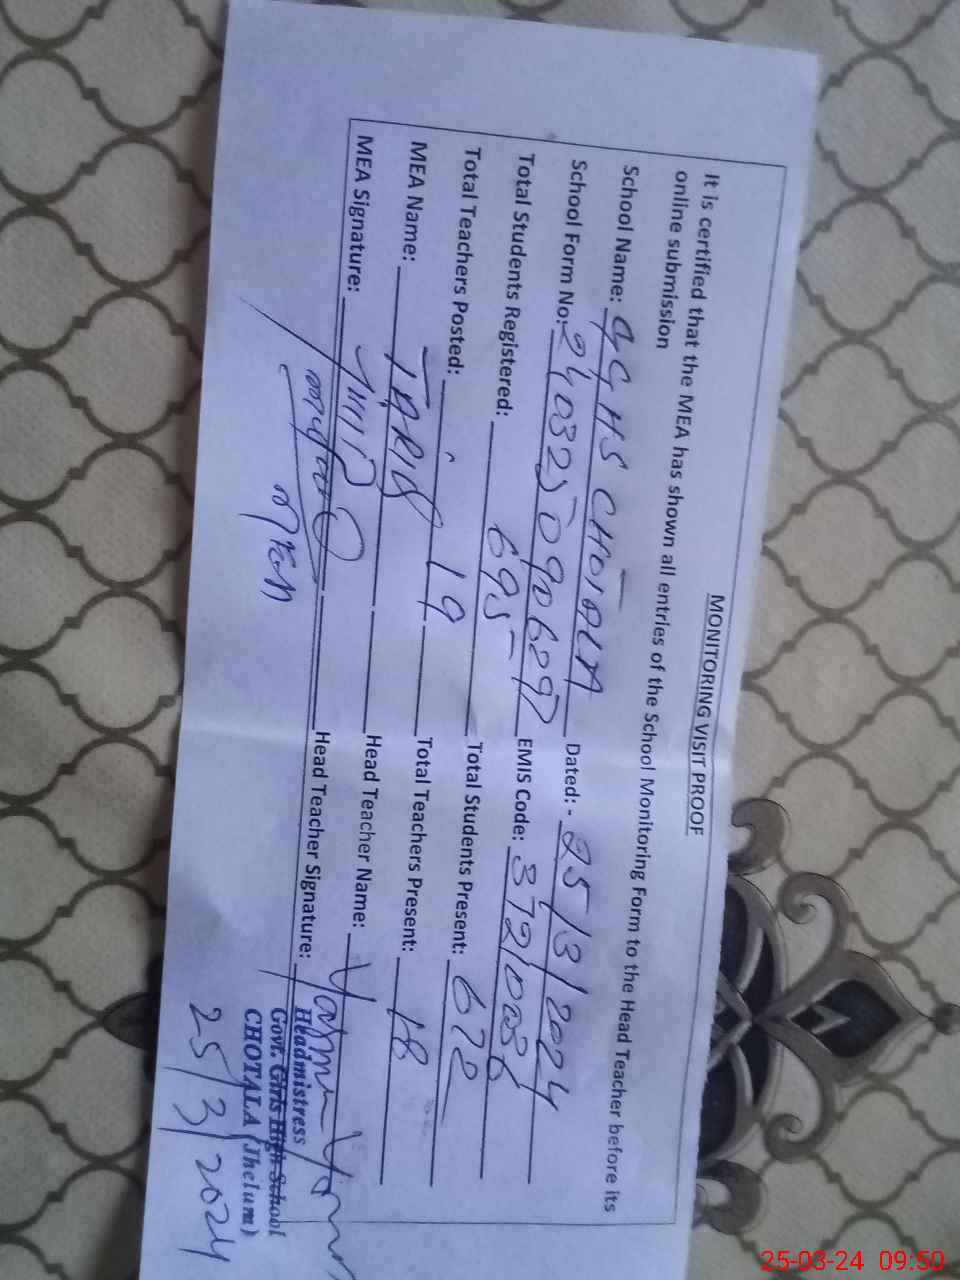 MONITORING VISIT PROOF
It is certified that the MEA has shown all entries of the School Monitoring Form to the Head Teacher before its
online submission
School Name: GGHS CHOTALA Dated: - 25/3/2024
School Form No: EMIS Code:
Total Students Registered: 695 Total Students Present: 672
Total Teachers Posted: 19 Total Teachers Present: 18
MEA Name: TARIQ Head Teacher Name:
MEA Signature: Head Teacher Signature:
Headmistress
Govt. Girls High School
CHOTALA (Jhelum)
25/3/2024
25-03-24 09:50